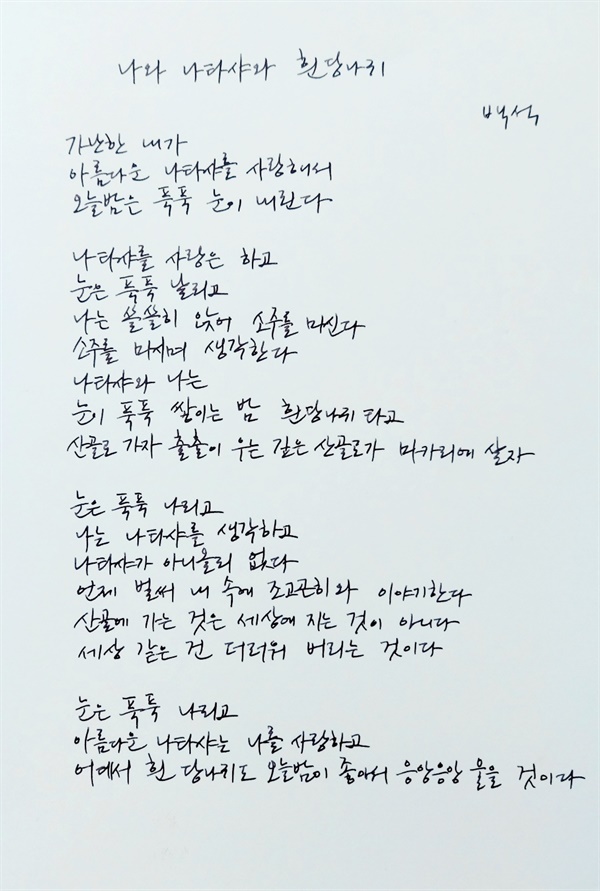 나와 나타샤와 흰당나귀
백석
가난한 내가
아름다운 나타샤를 사랑해서
오늘밤은 푹푹 눈이 내린다
나타샤를 사랑은 하고
눈은 푹푹 날리고
나는 쓸쓸히 앉어 소주를 마신다
소주를 마시며 생각한다
나타샤와 나는
눈이 푹푹 쌓이는 밤 흰당나귀 타고
산골로 가자 출출이 우는 깊은 산골로가 마가리에 살자
눈은 푹푹 나리고
나는 나타샤를 생각하고
나타샤가 아니올리 없다
언제 벌써 내 속에 조고곤히와 이야기한다
산골에 가는 것은 세상에 지는 것이 아니다
세상 같은 건 더러워 버리는 것이다
눈은 푹푹 나리고
아름다운 나타샤는 나를 사랑하고
어데서 흰 당나귀도 오늘밤이 좋아서 응앙응앙 울을 것이다